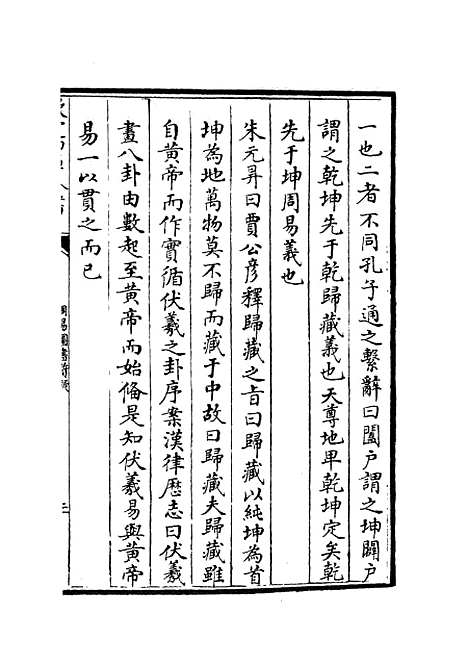 一也二者不同孔子通之繫辭曰闔户謂之坤闢户
謂之乾坤先于乾歸藏義也天尊地卑乾坤定矣乾
先于坤周易義也
朱元昇曰賈公彦釋歸藏之旨曰歸藏以純坤為首
坤為地萬物莫不歸而藏于中故曰歸藏夫歸藏雖
自黄帝而作實循伏羲之卦序案漢律歴志曰伏羲
畫八卦由數起至黄帝而始備是知伏羲易與黄帝
易一以貫之而已